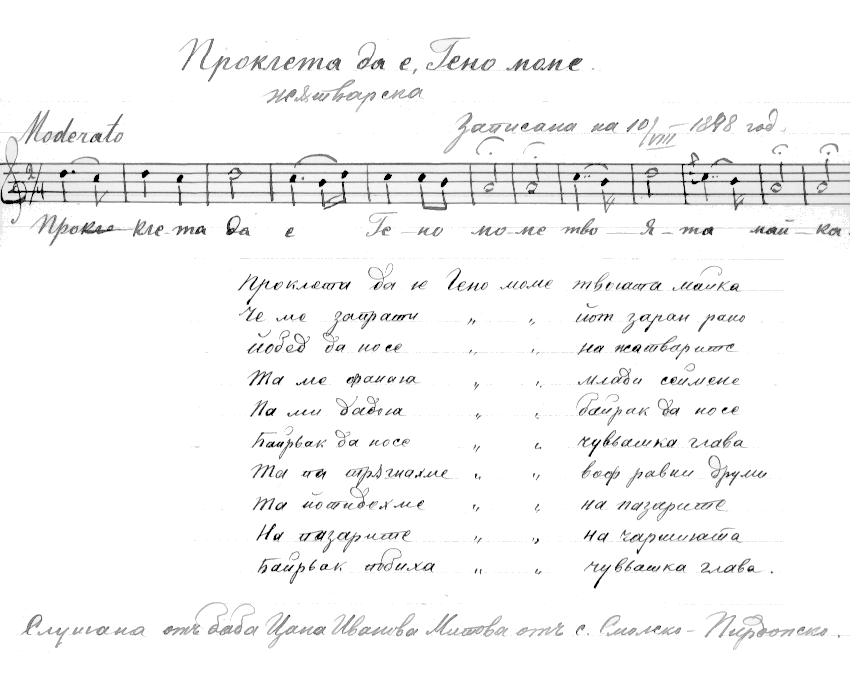 Проклета да е, Гено моме.
жѫтварска
Moderato
Записана на 10/VIII 1898 год.
2/4
Прокле кле-та да е Ге-но мо-ме тво-я-та май-ка.
Проклета да је Гено моме твоіата майка
Че ме запрати „ „ йот заран рано
йобед да носе „ „ на жатварите
Та ме фанаіа „ „ млади сеймене
Па ми дадоіа „ „ байрак да носе
Байръак да носе „ „ чувьашка глава
Та па трѣгнахме „ „ воф равни друми
Та йотидехме „ „ на пазарите
На пазарите „ „ на чаршиіата
Байръак побиха „ „ чувьашка глава.
Слушана отъ баба Цана Иванова Митова отъ с. Смолско - Пирдопско.